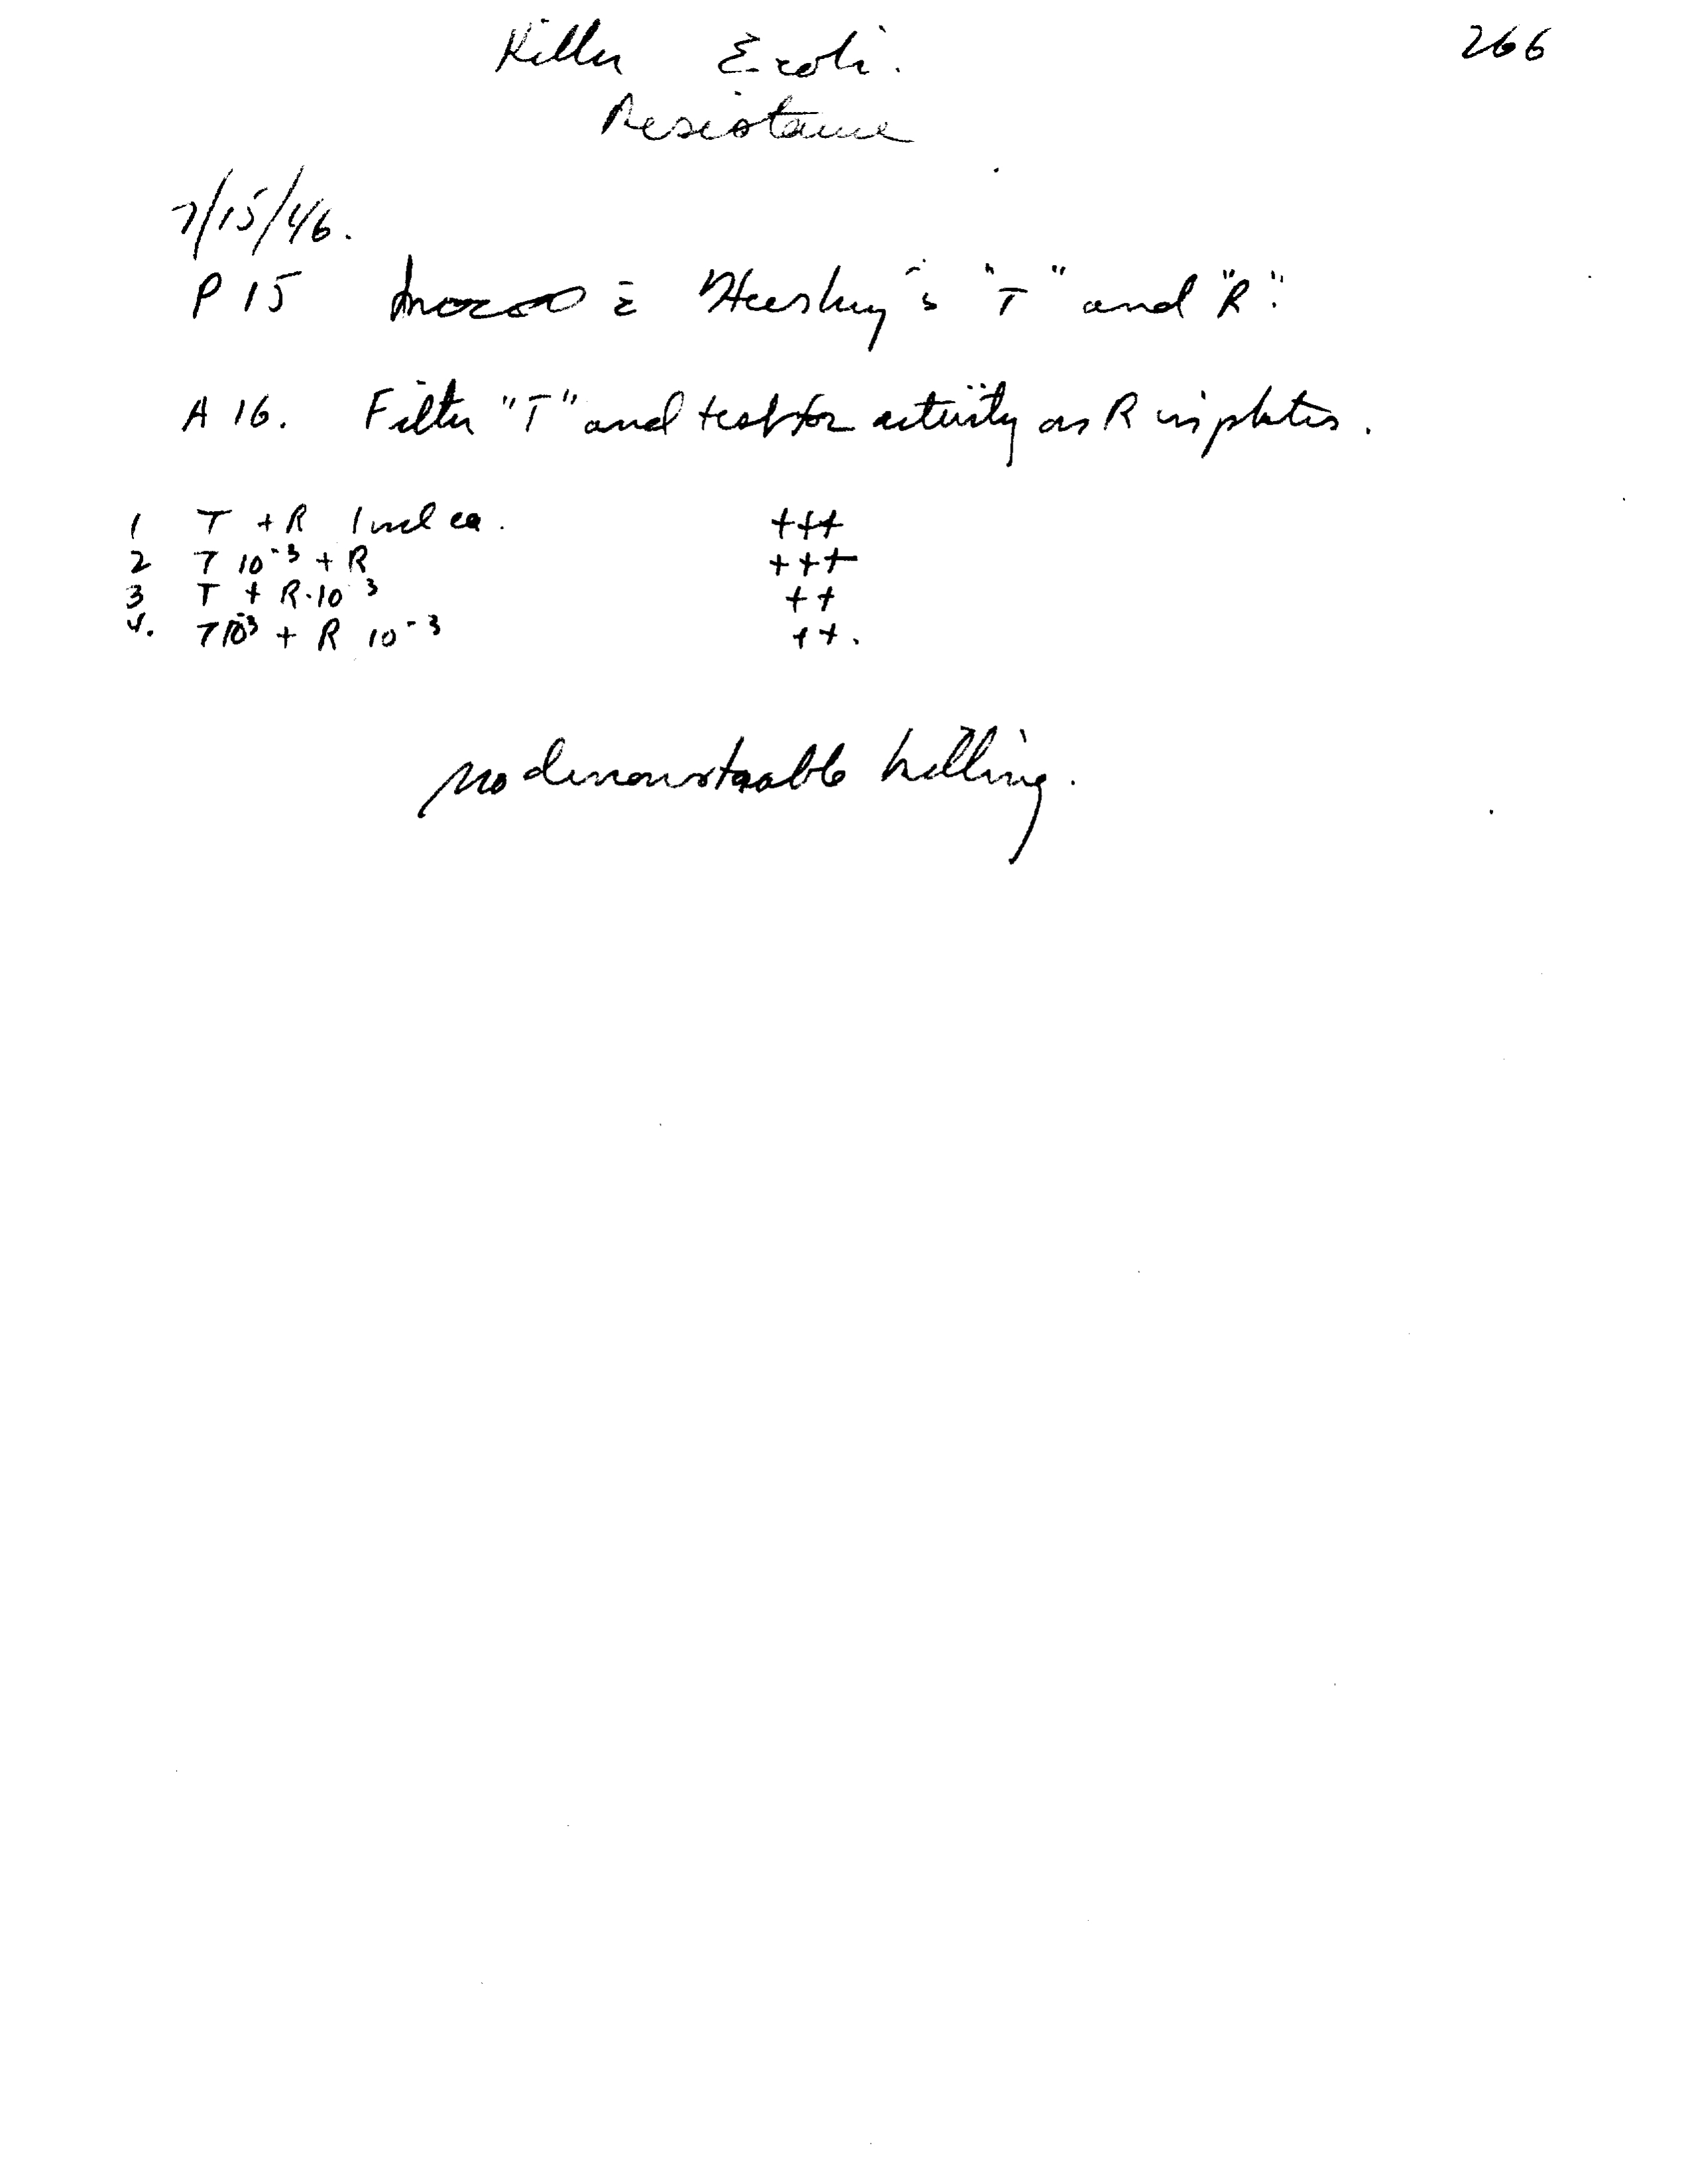 Killer E. coli. 266
Resistance
7/15/46.
P 15 c̄ Hershey's "T" and "R".
A 16. Filter "T" and test for activity on R in plates.
1 T + R 1 ml ea. +++
2 T 10⁻³ + R +++
3 T + R·10⁻³ ++
4. T 10⁻³ + R 10⁻³ ++.
no demonstrable killing.